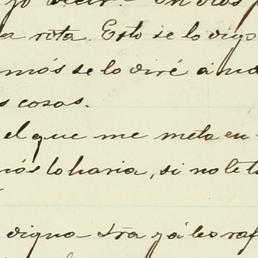 yo decir. - En dros p
a rota. Esto se lo digo
más se lo diré á na
s cosas.
el que me meta en
más lo haria, si no te t
digna Sra yá les ra